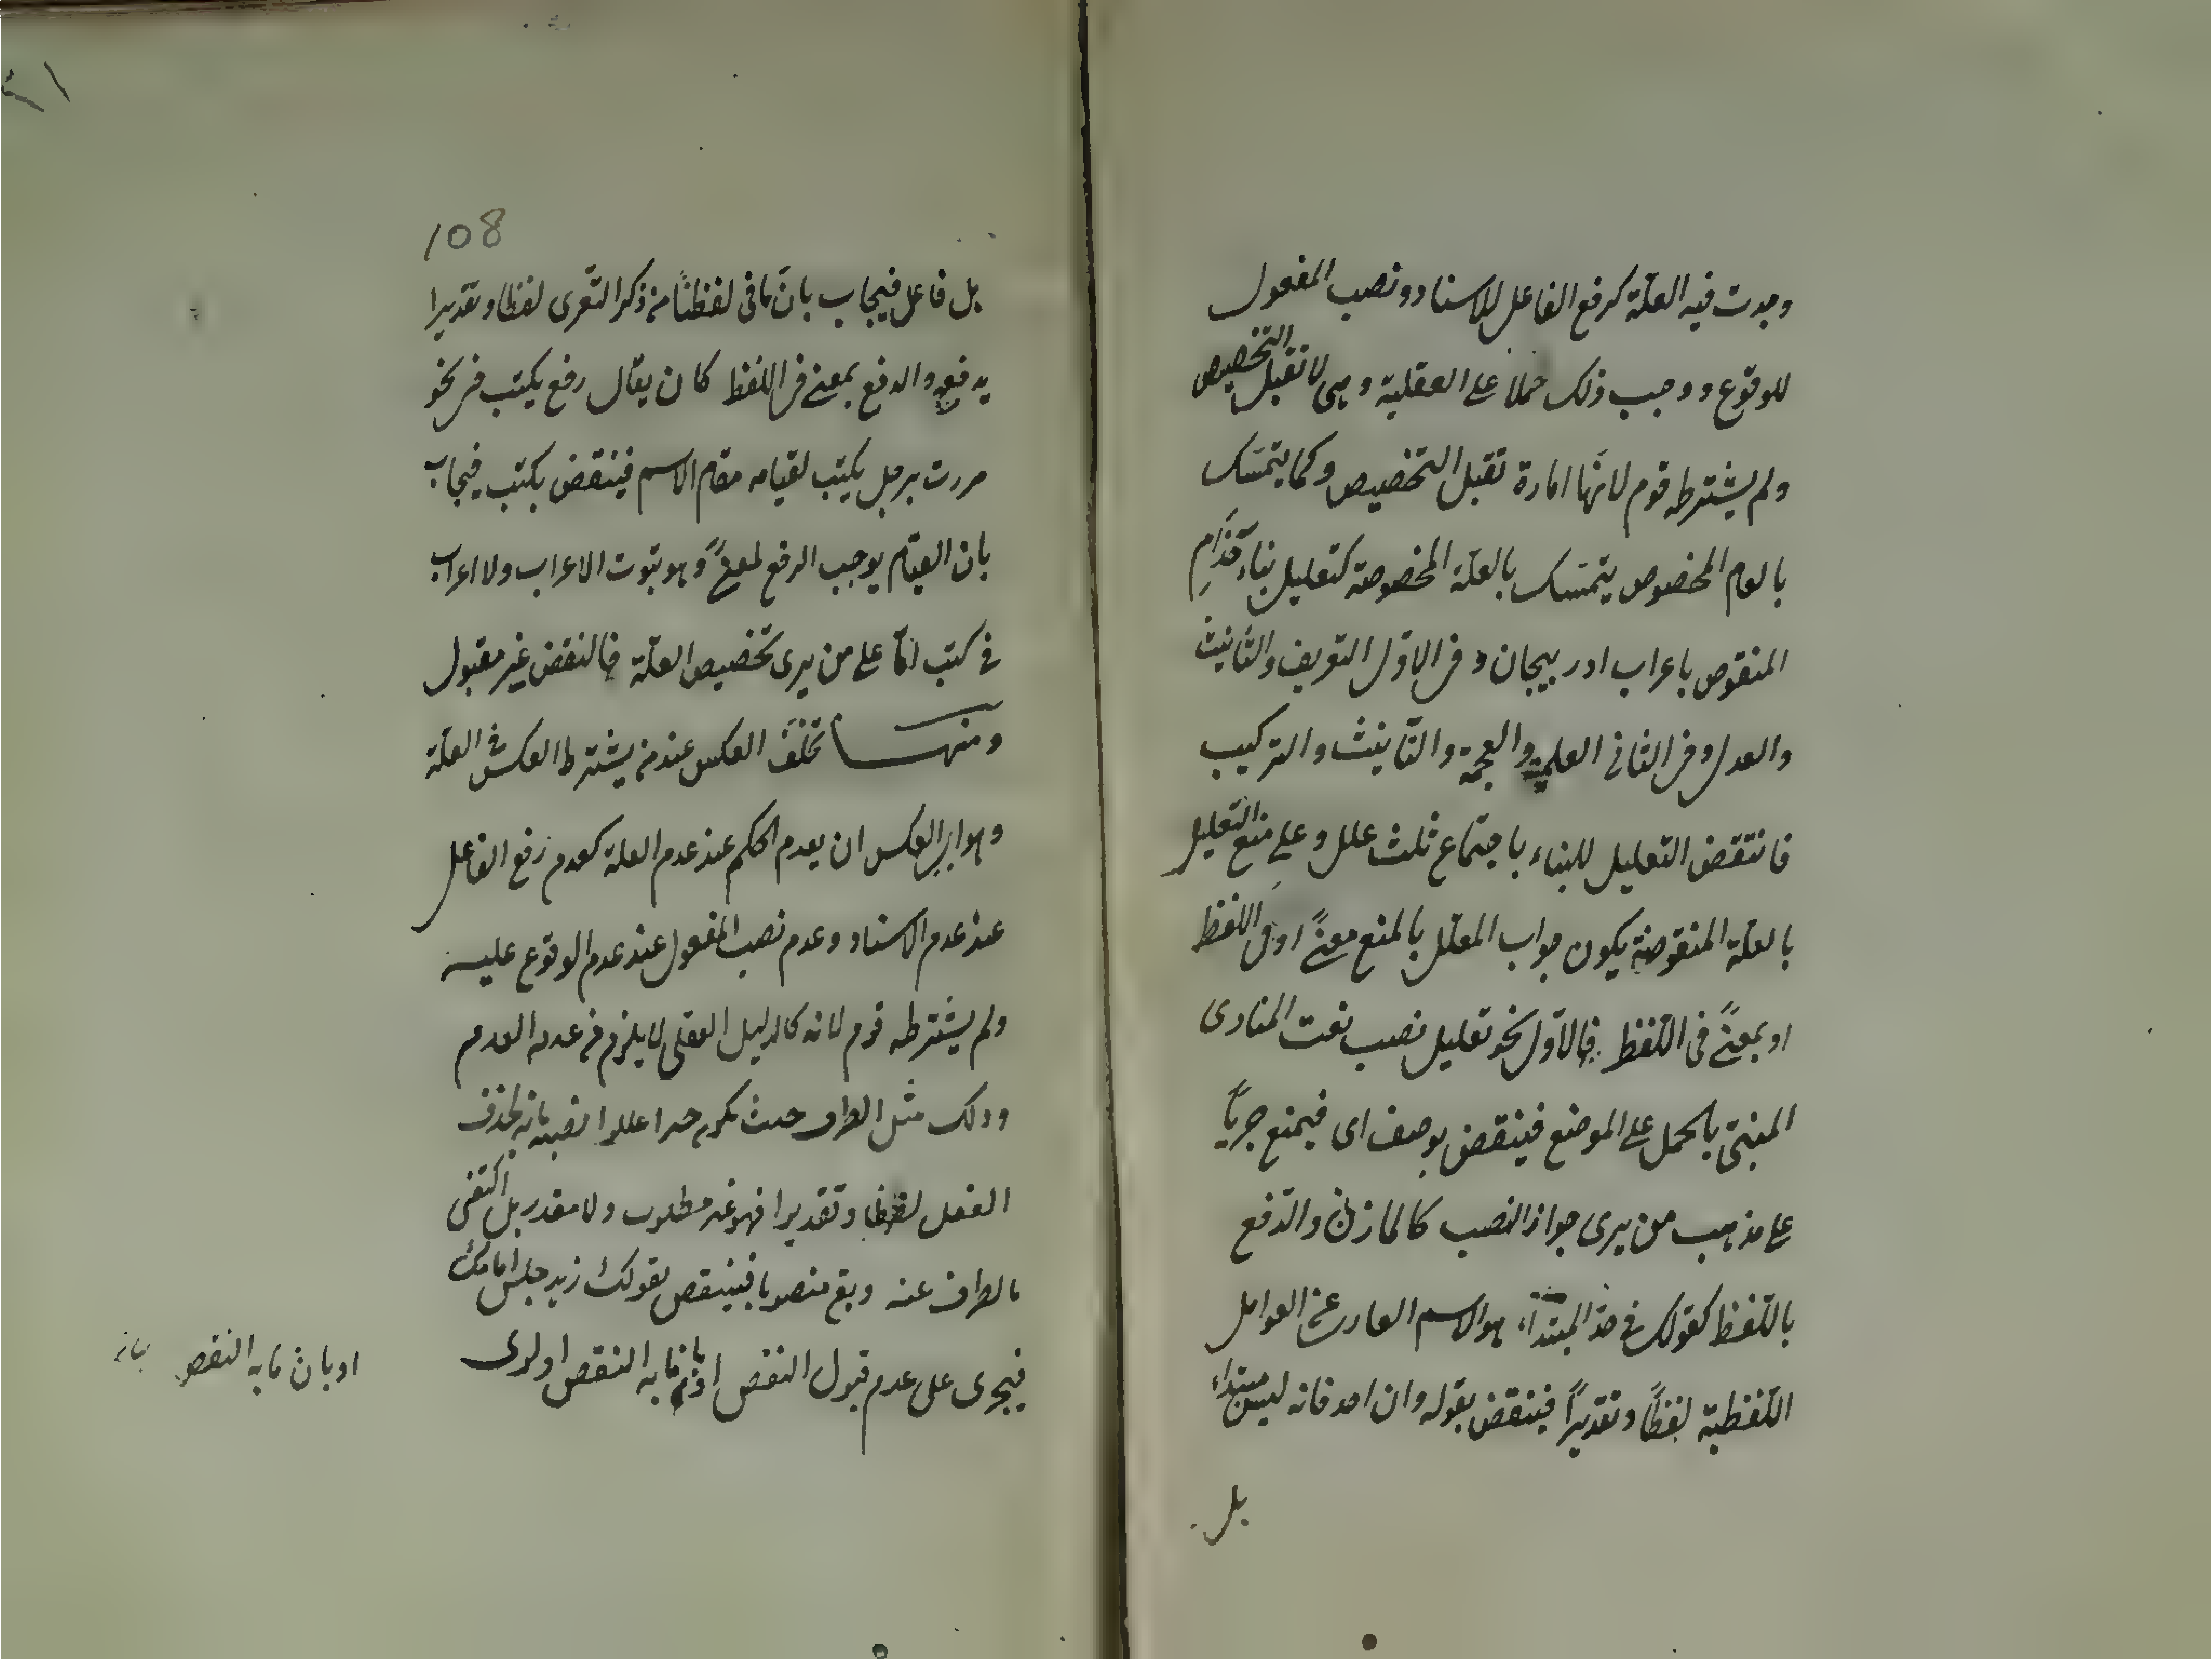 وجدت فيه العلّة كرفع الفاعل للاسناد ونصب المفعول
للوقوع ووجب ذلك حملا على العقلية وهى لا تقبل التخصيص
ولم يشترطه قوم لانّها امارة تقبل التخصيص وكما يتمسّك
بالعام المخصوص يتمسّك بالعلّة المخصوصة كتعليل بناء حَذَامِ
المنقوص باعراب ادربيجان وفى الاوّل التعريف والتأنيث
والعدل وفى الثانى العلمية والعجمة والتأنيث والتركيب
فانتقض التعليل للبناء باجتماع ثلث علل وعلى منع التعليل
بالعلّة المنقوضة يكون جواب المعلّل بالمنع معنىً او فى اللفظ
او بمعنىً فى اللّفظ فالاوّل نحو تعليل نصب نعت المنادى
المبنىّ بالحمل على الموضع فينقض بوصف اى فيمنع جريًا
على مذهب من يرى جواز النصب كالمازنى والدّفع
باللّفظ كقولك فى حدّ المبتدأ هو الاسم العارى عن العوامل
اللّفظية لفظًا وتقديرًا فينقض بقوله وان احد فانه ليس مبتداء
بل
108
بل فاعل فيجاب بانّ ما فى لفظنا من ذكر التّعرى لفظا وتقديرا
يدفعه والدفع بمعنى فى اللفظ كان يقال رفع يكتب فى نحو
مررت برجل يكتب لقيامه مقام الاسم فينقض بكتب فيجاب
بان القيام يوجب الرفع لمعربٍ وهو ثبوت الاعراب ولا اعراب
فى كتب امّا على من يرى تخصيص العلّة فالنقض غير مقبول
ومنها تخلّف العكس عند من يشترط العكس فى العلّة
وهو اى العكس ان يعدم الحكم عند عدم العلة كعدم رفع الفاعل
عند عدم الاسناد وعدم نصب المفعول عند عدم الوقوع عليه
ولم يشترطه قوم لانه كالدليل العقلى لا يلزم من عدمه العدم
وذلك مثل الظرف حيث يكون خبرا عللوا نصبه بانه لحذف
الفعل لفظا وتقديرا فهو غير مطلوب ولا مقدر بل اكتفى
بالظرف عنه وبقى منصوبا فينقض بقولك زيد جلس امامك
فيجرى على عدم قبول النقض او بان ما به النقض اولوى
او بان ما به النقض